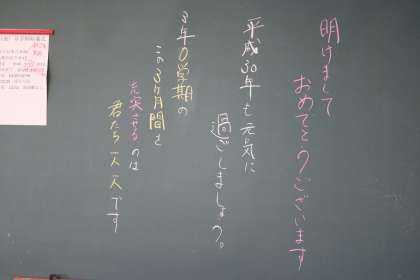 明けまして
おめでとうございます
平成30年も元気に
過ごしましょう。
3年0学期の
この3ヶ月間を
充実させるのは
君たち一人一人です